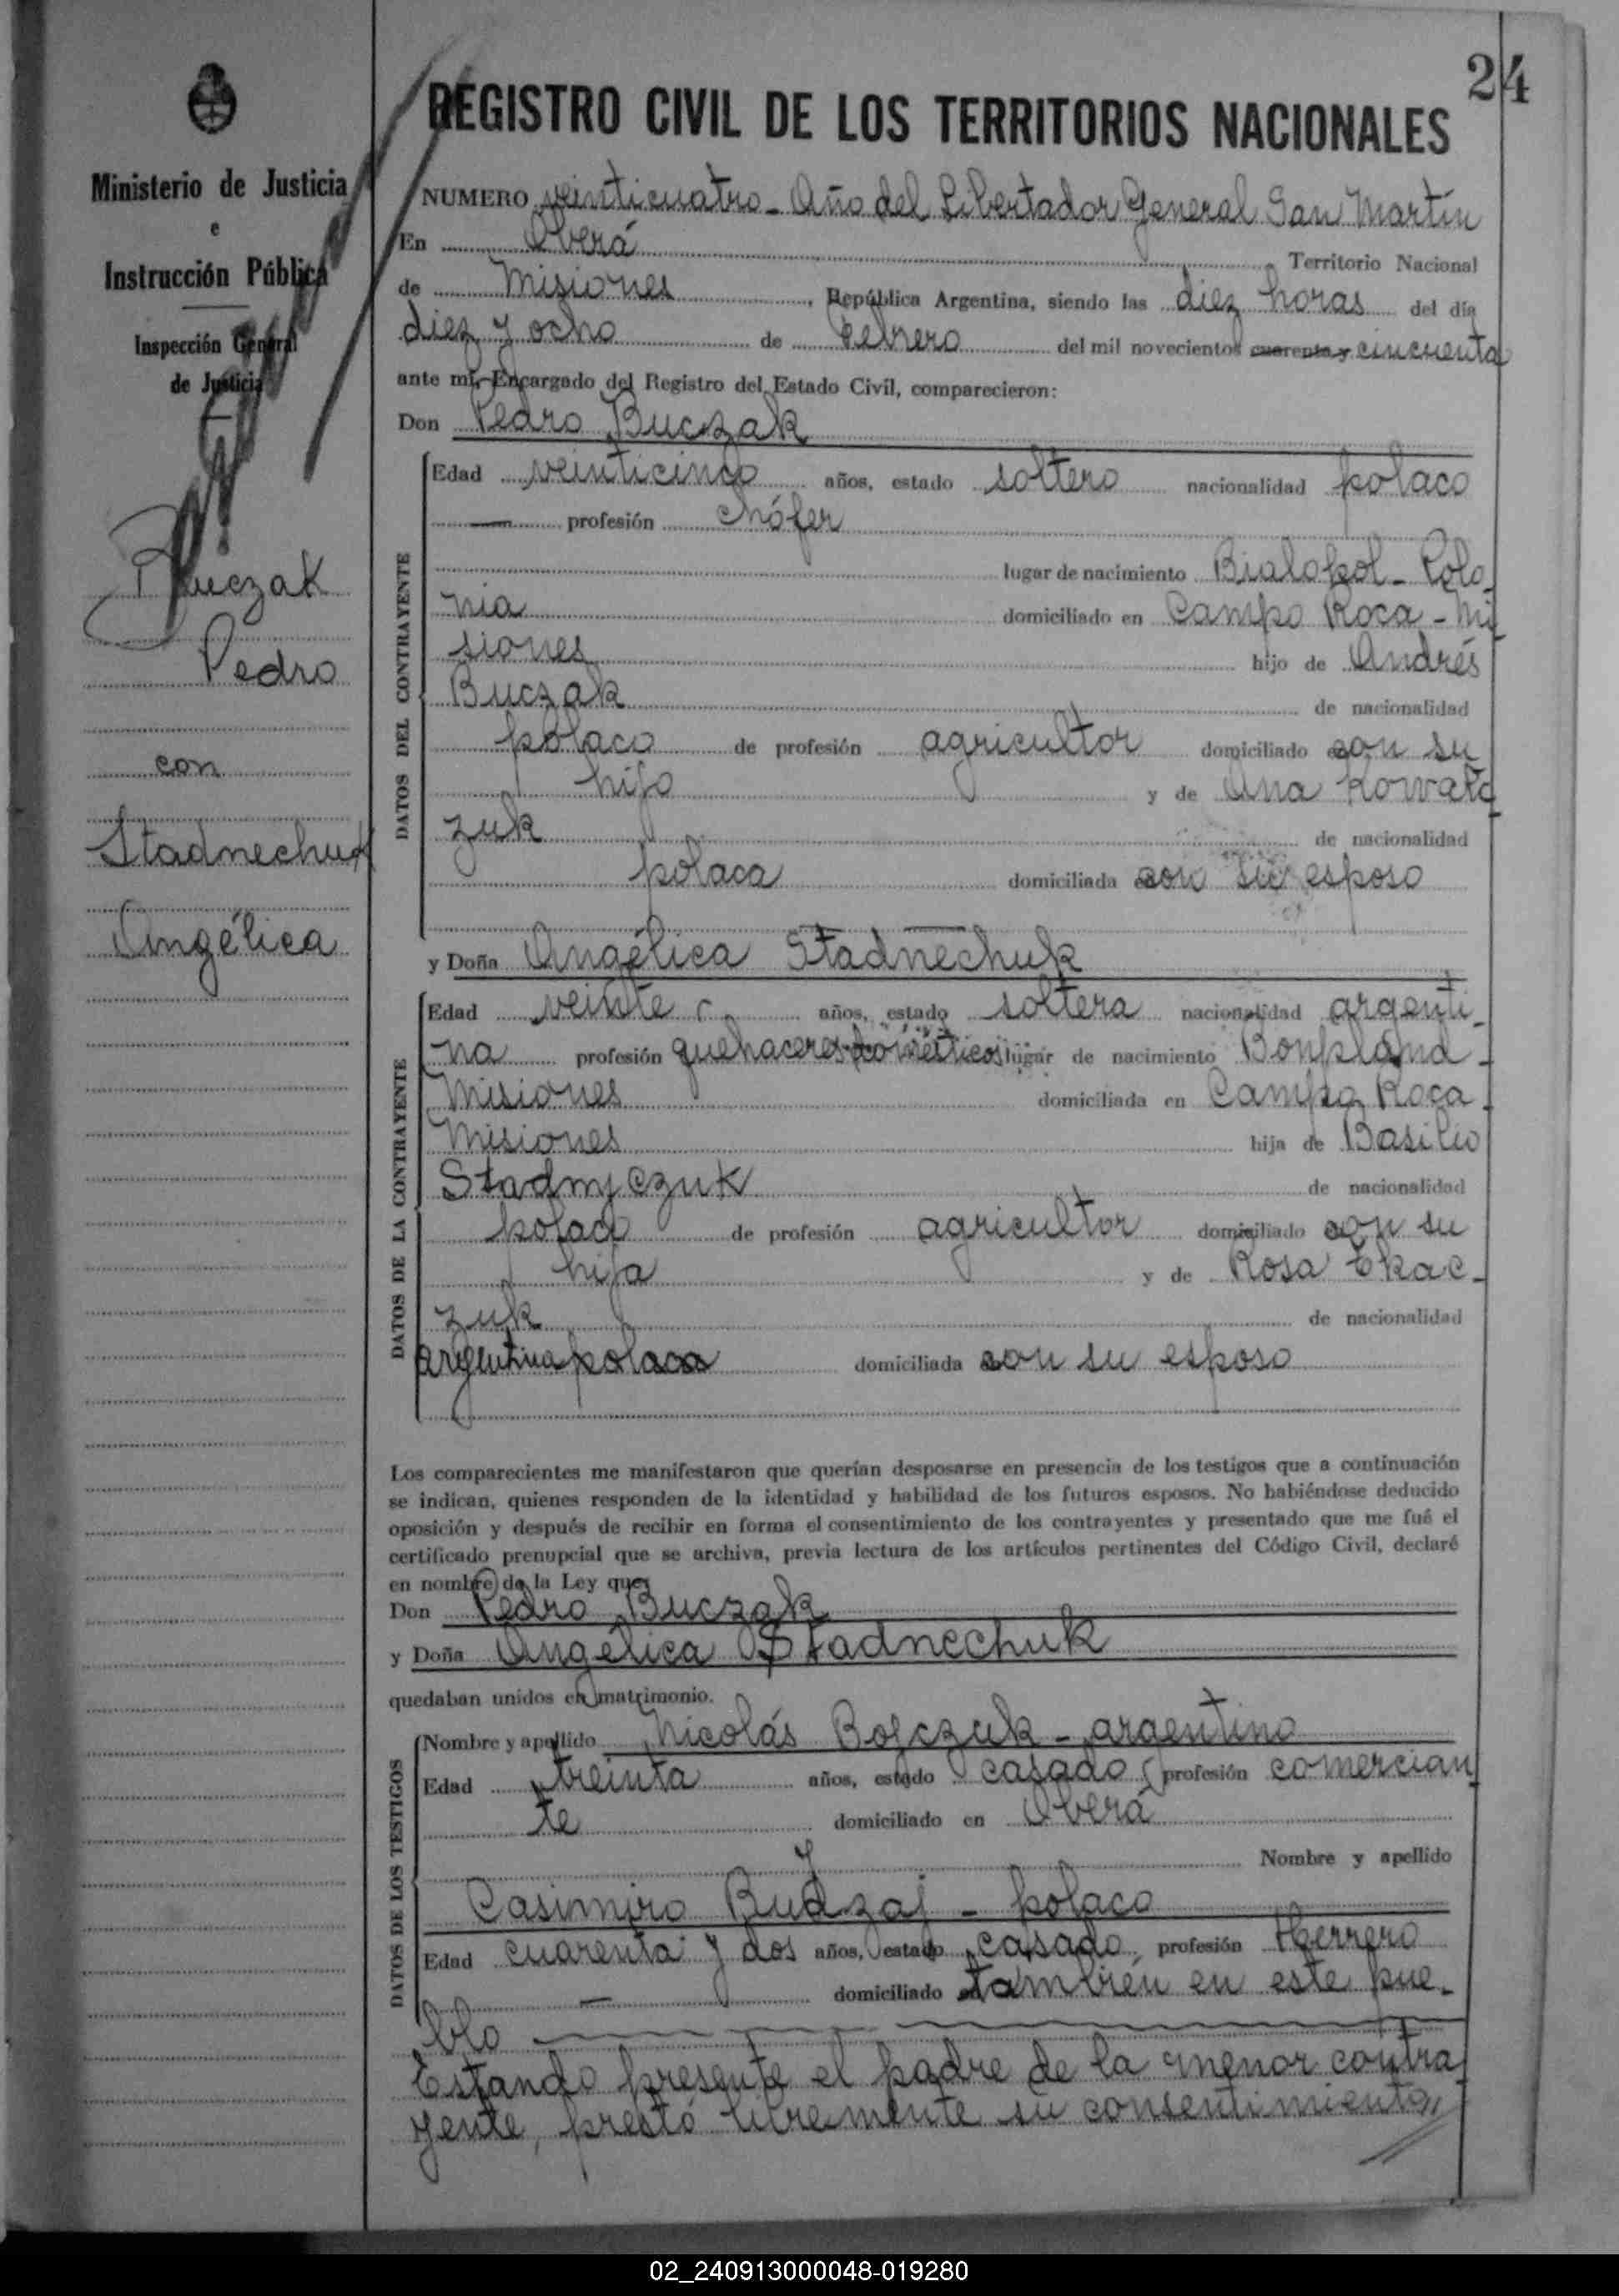 24
Ministerio de Justicia
e
Instrucción Pública
Inspección General
de Justicia
Buczak
Pedro
con
Stadnechuk
Angélica
REGISTRO CIVIL DE LOS TERRITORIOS NACIONALES
NUMERO veinticuatro - Año del Libertador General San Martín
En Oberá Territorio Nacional
de Misiones, República Argentina, siendo las diez horas del día
diez y ocho de febrero del mil novecientos cuarenta y cincuenta
ante mí, Encargado del Registro del Estado Civil, comparecieron:
Don Pedro Buczak
DATOS DEL CONTRAYENTE
Edad veinticinco años, estado soltero nacionalidad polaco
— profesión chófer
lugar de nacimiento Bialopol - Polo-
nia domiciliado en Campo Roca - Mi-
siones hijo de Andrés
Buczak de nacionalidad
polaco de profesión agricultor domiciliado con su
hijo y de Ana Kowalc-
zuk de nacionalidad
polaca domiciliada con su esposo
y Doña Angélica Stadnechuk
DATOS DE LA CONTRAYENTE
Edad veinte años, estado soltera nacionalidad argenti-
na profesión quehaceres domésticos lugar de nacimiento Bonpland -
Misiones domiciliada en Campo Roca -
Misiones hija de Basilio
Stadnyczuk de nacionalidad
polaco de profesión agricultor domiciliado con su
hija y de Rosa Tkac-
zuk de nacionalidad
argentina polaca domiciliada con su esposo
Los comparecientes me manifestaron que querían desposarse en presencia de los testigos que a continuación
se indican, quienes responden de la identidad y habilidad de los futuros esposos. No habiéndose deducido
oposición y después de recibir en forma el consentimiento de los contrayentes y presentado que me fué el
certificado prenupcial que se archiva, previa lectura de los artículos pertinentes del Código Civil, declaré
en nombre de la Ley que,
Don Pedro Buczak
y Doña Angélica Stadnechuk
quedaban unidos en matrimonio.
DATOS DE LOS TESTIGOS
Nombre y apellido Nicolás Bojczuk - argentino
Edad treinta años, estado casado profesión comercian-
te domiciliado en Oberá
y Nombre y apellido
Casimiro Budzaj - polaco
Edad cuarenta y dos años, estado casado, profesión Herrero
— domiciliado también en este pue-
blo
Estando presente el padre de la menor contra-
yente, prestó libremente su consentimiento
02_240913000048-019280